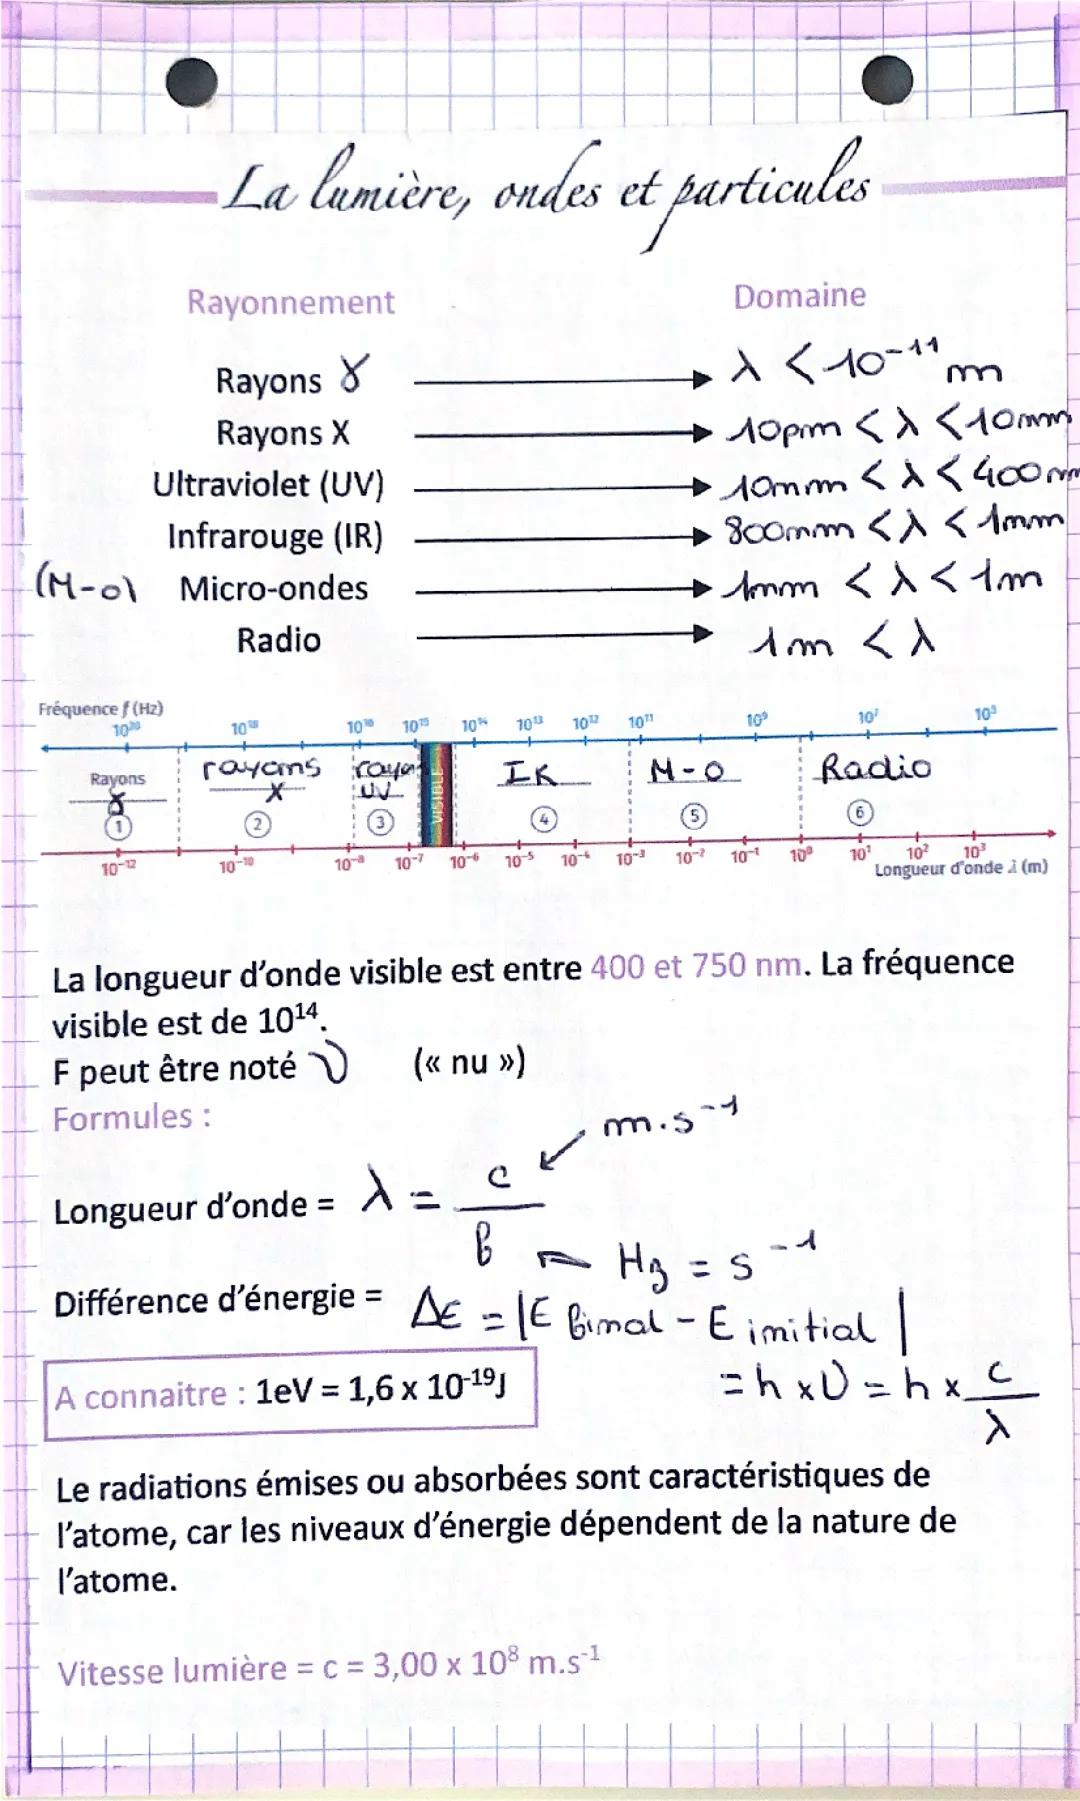 La lumière, ondes et particules
Rayonnement Domaine
Rayons γ λ < 10⁻¹¹ m
Rayons X 10pm < λ < 10nm
Ultraviolet (UV) 10nm < λ < 400nm
Infrarouge (IR) 800nm < λ < 1mm
(M-o) Micro-ondes 1mm < λ < 1m
Radio 1m < λ
Fréquence f (Hz)
10²⁰ 10¹⁸ 10¹⁶ 10¹⁵ 10¹⁴ 10¹³ 10¹² 10¹¹ 10⁹ 10⁷ 10⁵
Rayons γ rayons X rayons UV VISIBLE IR M-O Radio
1 2 3 4 5 6
10⁻¹² 10⁻¹⁰ 10⁻⁸ 10⁻⁷ 10⁻⁶ 10⁻⁵ 10⁻⁴ 10⁻³ 10⁻² 10⁻¹ 10⁰ 10¹ 10² 10³
Longueur d'onde λ (m)
La longueur d'onde visible est entre 400 et 750 nm. La fréquence
visible est de 10¹⁴.
F peut être noté ν (« nu »)
Formules :
m.s⁻¹
Longueur d'onde = λ = c / f
Hz = s⁻¹
Différence d'énergie = ΔE = |E final - E initial|
= h x ν = h x c / λ
A connaitre : 1eV = 1,6 x 10⁻¹⁹J
Le radiations émises ou absorbées sont caractéristiques de
l'atome, car les niveaux d'énergie dépendent de la nature de
l'atome.
Vitesse lumière = c = 3,00 x 10⁸ m.s⁻¹